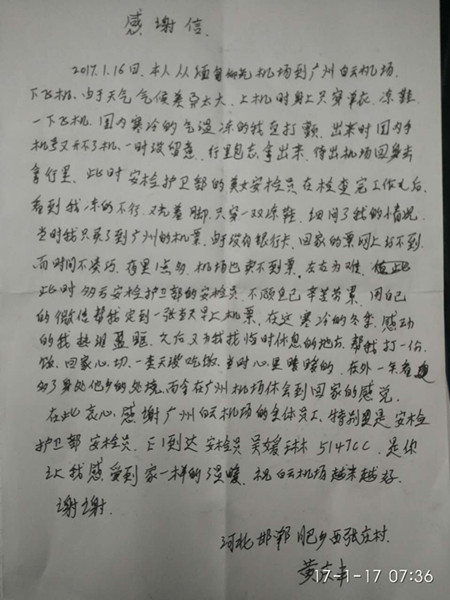 感谢信.
2017.1.16日.本人从 机场到广州白云机场.
下飞机.由于天气气候差 太大.上机时身上只穿单衣,凉鞋
一下飞机.国内寒冷的气温冻的我直打颤.出来时国内手
机又开不了机.一时没留意.行里包忘拿出来.待出机场回身去
拿行里.此时安检护卫部的美女安检员在检查完工作之后.
看到我冻的不行.又光着脚.只穿一双凉鞋.细问了我的情况.
当时我只买了到广州的机票.由于没有银行卡.回家的票网上订不到.
而时间不凑巧.夜里1点多.机场也卖不到票.左右为难.值此
此时多亏安检护卫部的安检员.不顾自己辛苦劳累.用自己
的微信帮我定到一张当天早上机票.在这寒冷的冬季.感动
的我热泪盈眶.之后又为我找临时休息的地方.帮我打一份
饭.回家心切.一天没吃饭.当时心里暖暖的.在外一年看
多了身处他乡的处境.而今在广州机场体会到回家的感觉.
在此衷心.感谢广州白云机场的全体员工.特别是安检
护卫部安检员. 到达安检员吴媛 5147CC.是你
让我感受到家一样的温暖.祝白云机场越来越好.
谢谢.
河北邯郸肥乡西张庄村.
黄 丰
17-1-17 07:36